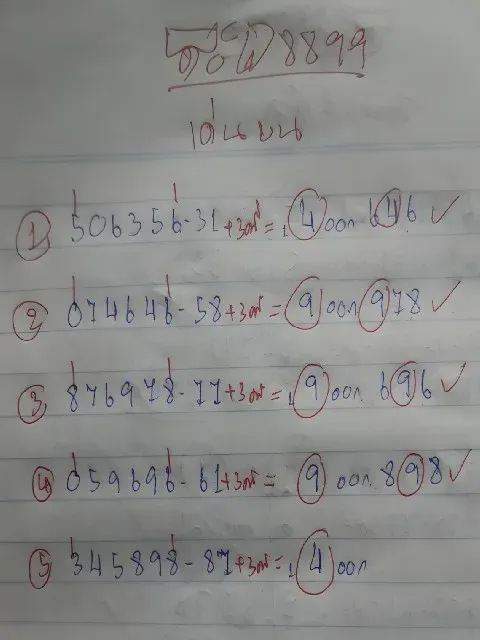 8899
เด่นบน
① 506356-31+3ตัว=4 ออก 646 ✓
② 074646-58+3ตัว=9 ออก 978 ✓
③ 876978-77+3ตัว=9 ออก 696 ✓
④ 059696-61+3ตัว= 9 ออก 898 ✓
⑤ 345898-87+3ตัว=4 ออก